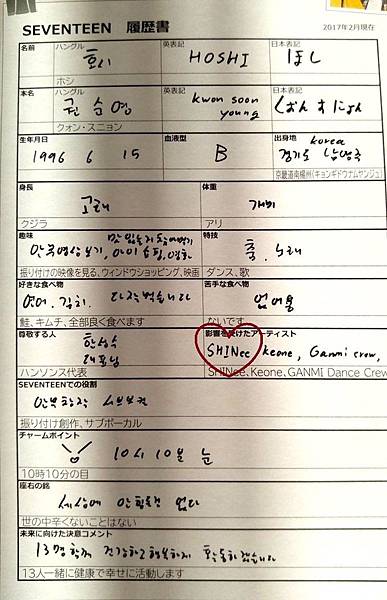 SEVENTEEN 履歴書
2017年2月現在
名前 ハングル 英表記 日本表記
호시 HOSHI ほし
ホシ
本名 ハングル 英表記 日本表記
권순영 kwon soon young くぉんすにょん
クォン・スニョン
生年月日 血液型 出身地
1996 6 15 B korea
경기도 남양주
京畿道南楊州(キョンギドウナムヤンジュ)
身長 体重
고래 개미
クジラ アリ
趣味 特技
안무영상보기, 아이쇼핑, 영화 춤, 노래
振り付けの映像を見る、ウィンドウショッピング、映画 ダンス、歌
好きな食べ物 苦手な食べ物
연어, 김치, 다 잘 먹습니다 없어용
鮭、キムチ、全部良く食べます ないです
尊敬する人 影響を受けたアーティスト
한성수 대표님 SHINee, keone, Ganmi crew,
ハンソンス代表 SHINee、Keone、GANMI Dance Crew
SEVENTEENでの役割
안무창작 서브보컬
振り付け創作、サブボーカル
チャームポイント
10시 10분 눈
10時10分の目
座右の銘
세상에 안 힘든건 없다
世の中辛くないことはない
未来に向けた決意コメント
13명 함께 건강하고 행복하게 활동하겠습니다
13人一緒に健康で幸せに活動します